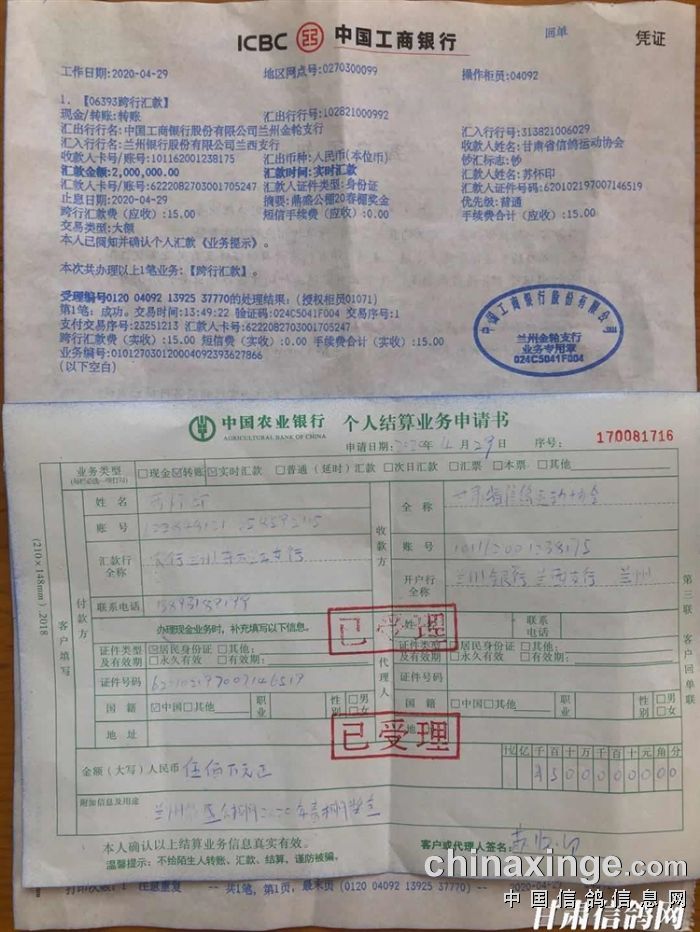 ICBC 中国工商银行
回单
凭证
工作日期:2020-04-29 地区网点号:0270300099 操作柜员:04092
1. 【06393跨行汇款】
现金/转账:转账 汇出行行号:102821000992
汇出行行名:中国工商银行股份有限公司兰州金轮支行 汇入行行号:313821006029
汇入行行名:兰州银行股份有限公司兰西支行 收款人姓名:甘肃省信鸽运动协会
收款人卡号/账号:101162001238175 汇出币种:人民币(本位币) 钞汇标志:钞
汇款金额:2,000,000.00 汇款时间:实时汇款 汇款人姓名:苏怀印
汇款人卡号/账号:6222082703001705247 汇款人证件类型:身份证 汇款人证件号码:620102197007146519
止息日期:2020-04-29 摘要:鼎盛公棚20春棚奖金 优先级:普通
跨行汇款费(应收):15.00 短信手续费(应收):0.00 手续费合计(应收):15.00
交易类型:大额
本人已阅知并确认个人汇款《业务提示》。
本次共办理以上1笔业务:【跨行汇款】。
受理编号0120 04092 13925 37770的处理结果:(授权柜员01071)
第1笔: 成功。交易时间:13:49:22 验证码:024C5041F004 交易序号:1
支付交易序号:23251213 汇款人卡号:6222082703001705247
跨行汇款费(实收):15.00 短信费(实收):0.00 手续费合计(实收):15.00
业务编号:010127030120004092393627866
(以下空白)
中国工商银行股份有限公司
兰州金轮支行
业务专用章
024C5041F004
中国农业银行 个人结算业务申请书
AGRICULTURAL BANK OF CHINA
申请日期:2020年4月29日 序号: 170081716
业务类型 □现金☑转账 ☑实时汇款 □普通(延时)汇款 □次日汇款 □汇票 □本票 □其他
姓名 全称
账号
汇款行全称 账号 101162001238175
开户行全称 兰州银行兰西支行 兰州
联系电话
付款方
收款方
客户填写
(210×148mm) 2018
第三联 客户回单
办理现金业务时,补充填写以下信息。 姓名 联系电话
已受理
证件类型及有效期 ☑居民身份证 □其他: □永久有效 □有效期: 证件类型及有效期 □居民身份证 □其他: □永久有效 □有效期:
代理人
证件号码 620102197007146519 证件号码
国籍 ☑中国□其他 职业 性别 □男 □女 国籍 □中国□其他 职业 性别 □男 □女
地址 地址
已受理
金额(大写)人民币 伍佰万元正 亿千百十万千百十元角分
¥500000000
附加信息及用途
本人确认以上结算业务信息真实有效。 客户或代理人签名: 苏怀印
温馨提示: 不给陌生人转账、汇款、结算,谨防被骗。
打印次数: 1 注意重复 --共1笔,第1页,最末页(0120 04092 13925 37770)-- 2020-04-29
chinaxinge.com
中国信鸽信息网
甘肃信鸽网